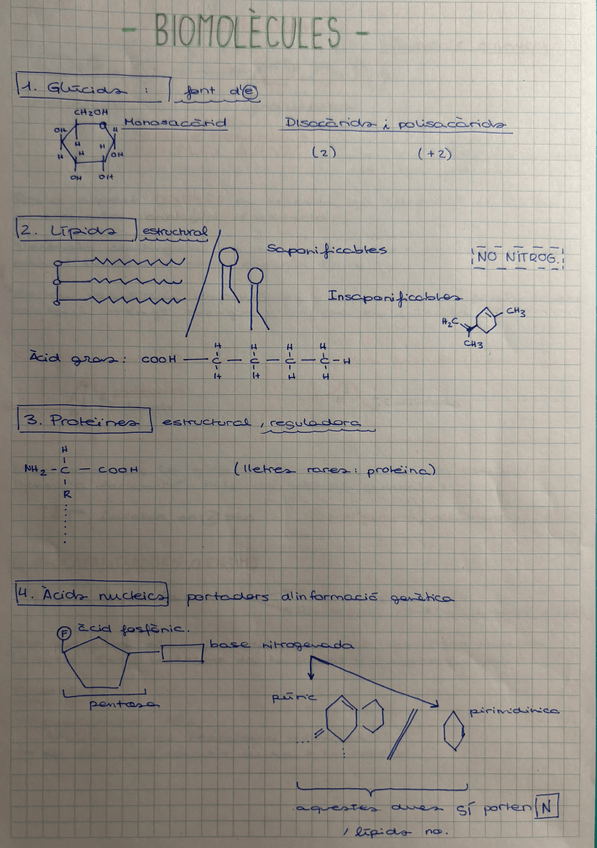 - BIOMOLÈCULES -
1. Glúcids : font d'e
CH2OH
Monosacàrid
Disacàrids i polisacàrids
OH
H
H
H
OH
H
H
OH
OH
(2)
(+2)
2. Lípids estructural
Saponificables
NO NITROG.
Insaponificables
CH3
H2C
CH3
H H H H
Àcid gras: COOH — C — C — C — C - H
H H H H
3. Proteïnes estructural, reguladora
H
NH2 - C - COOH
(lletres rares: proteïna)
R
4. Àcids nucleics portadors d'informació genètica
P
àcid fosfòric.
base nitrogenada
pentosa
púric
pirimidínica
aquestes dues SÍ porten N
, lípids no.